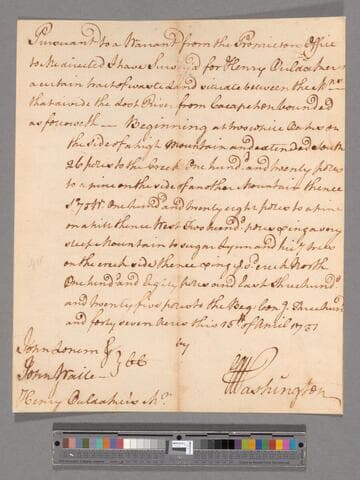 Pursuant to a Warrant from the Proprietors Office
to Me directed I have Survey'd for Henry
a certain tract of waste Land situate between the
that divide the Lost River from Cacapehon bounded
as followeth — Beginning at two white Oaks on
the side of a high Mountain and extended South
26 poles to the Creek One hund'd and twenty poles
to a pine on the side of another Mountain thence
One hund'd and twenty eight poles to a pine
on a hill thence West Two hund'd poles a very
steep Mountain to sugar tree and hic'y trees
on the creek side thence creek North
One hund'd and Eighty poles and East Three hund'd
and twenty five poles to the Beg: Con'g Three hund'd
and forty seven Acres this 15th of April 1751
by
John
John Waite
CC
Henry
Washington